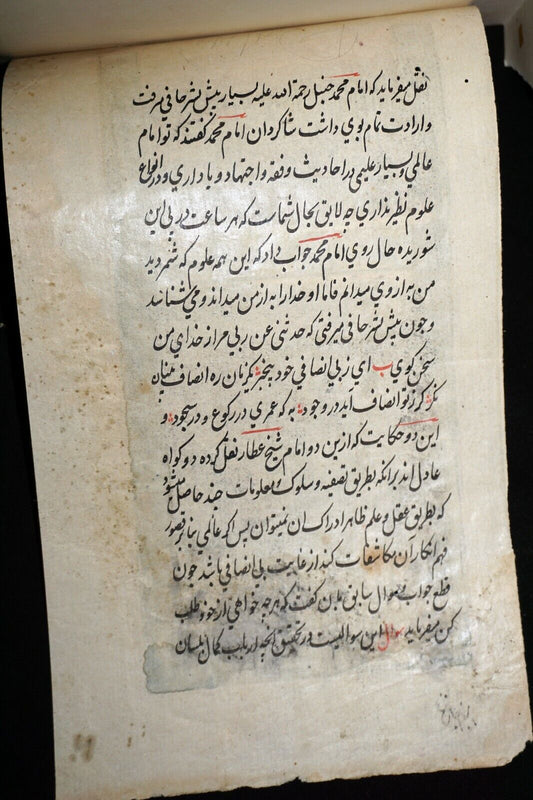 نقل میفرماید که امام محمد حنبل رحمة الله علیه بسیار پیش بشر حافی میرفت
و ارادت تمام بوی داشت شاکردان امام محمد کفتند که تو امام
عالمی و بسیار علیمی در احادیث و فقه و اجتهاد و یاد داری و در انواع
علوم نظیر نداری چه لایق بحال شماست که هر ساعت در پی این
شوریده حال روی امام محمد جواب داد که این همه علوم که شمردید
من به از وی میدانم فاما او خدا را به از من میداند و می شناسد
و چون پیش بشر حافی میرفتی که حدثنی عن ربی مرا از خدای من
سخن کوی ب ای ز بی انصافی خود بیخبر یکزمان ره انصاف
کر ز تو انصاف آید در وجود به که عمری در رکوع و در سجود و
این دو حکایت که ازین دو امام شیخ عطار نقل کرده دو کواه
عادل اند برانکه بطریق تصفیه و سلوک معلومات چند حاصل میشود
که بطریق عقل و علم ظاهر ادراک ان نمیتوان پس اکر عالمی بنا بر قصور
فهم انکار آن مکاشفات کند از غایت بی انصافی باشد چون
قطع جواب سوال سابق باین کفت که هر چه خواهی از خود طلب
کن میفرماید سوال این سوالیست در تحقیق انچه ارباب کمال بلسان